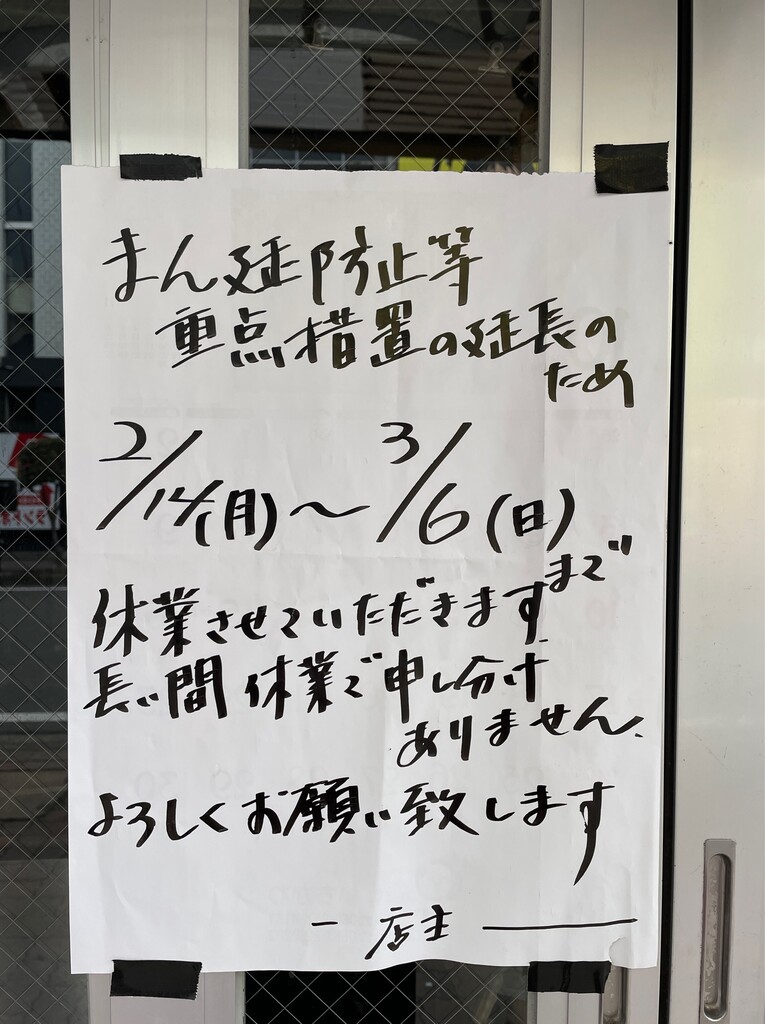 まん延防止等
重点措置の延長の
ため
2/14(月)〜3/6(日)
まで
休業させていただきます
長い間休業で申し分け
ありません、
よろしくお願い致します
ー店主ー